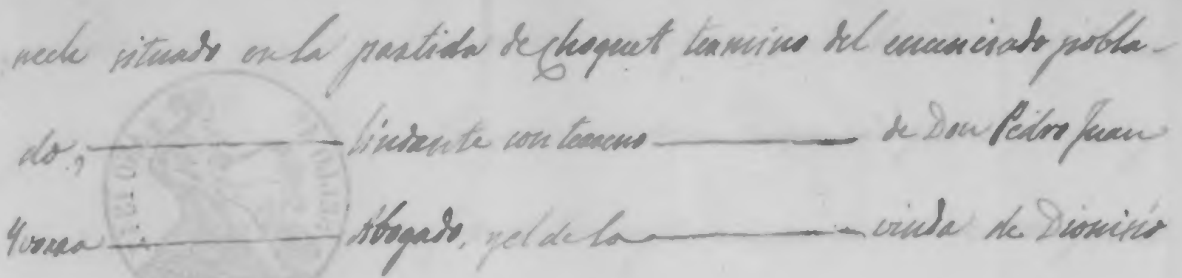 nech situado en la partida de Choquet termino del enunciado pobla-
do, lindante con terreno de Don Pedro Juan
Yvorra Abogado, y el de la viuda de Dionisio